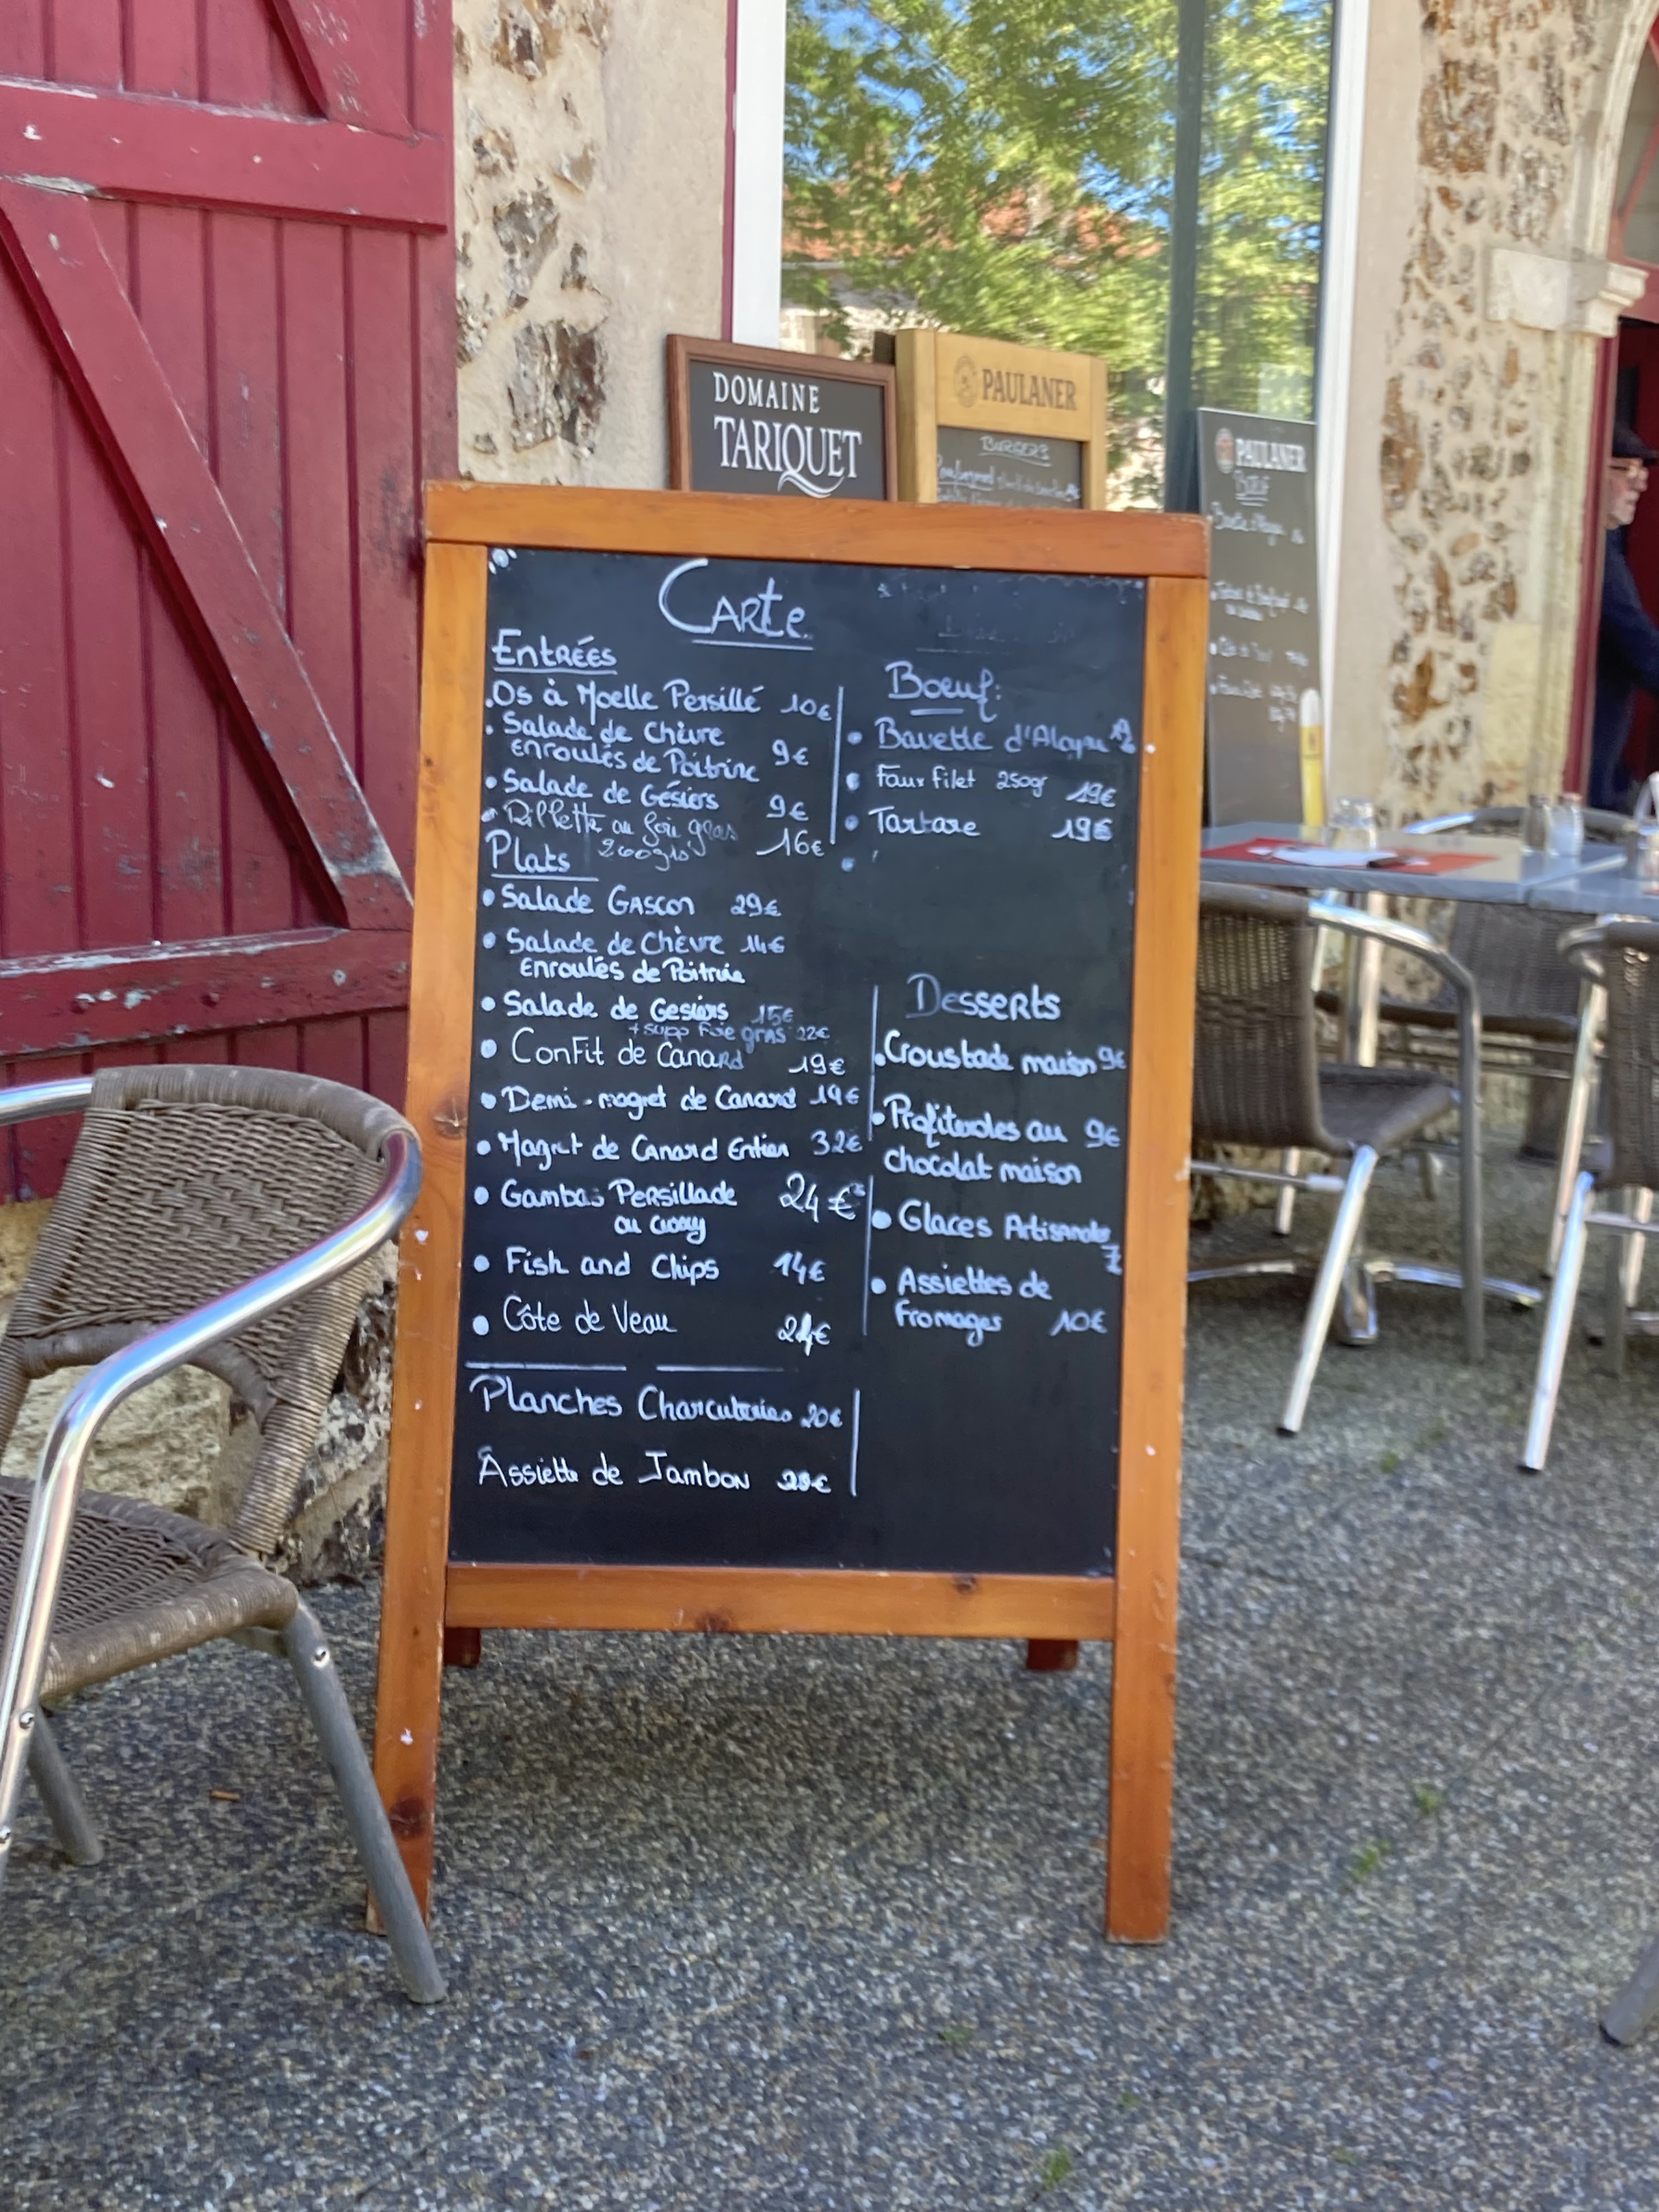 DOMAINE
TARIQUET
PAULANER
BURGERS
PAULANER
CARte
EntRÉES
.Os à Moelle Persillé 10€
• Salade de Chèvre
enroulés de Poitrine 9€
• Salade de Gésiers 9€
• Rillette au foie gras 16€
Plats
• Salade GASCON 29€
• Salade de Chèvre 14€
Enroulés de Poitrine
• Salade de Gesiers 15€
+ supp Foie gras 22€
• ConFit de Canard 19€
• Demi-magret de Canard 19€
• Magret de Canard Entier 32€
• Gambas PeRSillade 24€
• Fish and Chips 14€
• Côte de Veau 24€
Planches Charcuteries 20€
Assiette de Jambon
Boeuf:
• Bavette d'Aloyau
• Faux filet 250gr 19€
• Tartare 19€
Desserts
.Croustade maison 9€
• Profiteroles au 9€
chocolat maison
• Glaces Artisanales
7
• Assiettes de
Fromages 10€